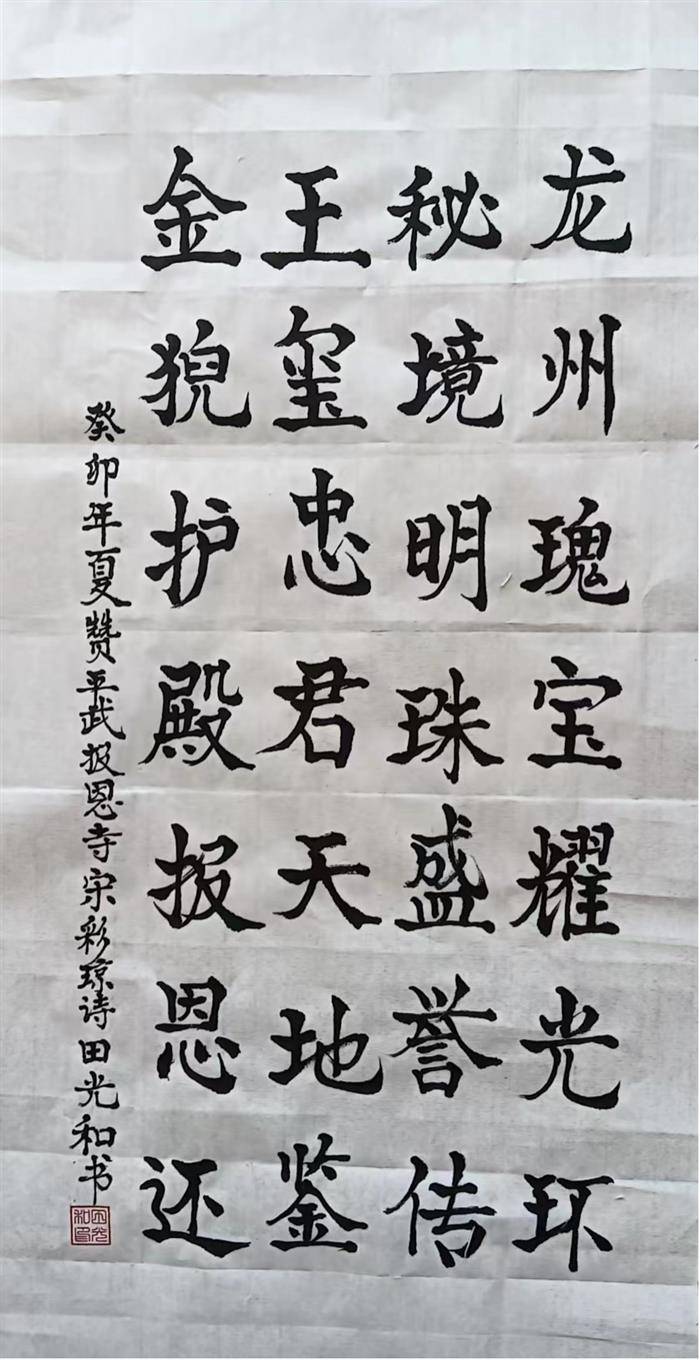 龙州瑰宝耀光环
秘境明珠盛誉传
王玺忠君天地鉴
金猊护殿报恩还
癸卯年夏赞平武报恩寺宋彩琼诗田光和书
田光和印